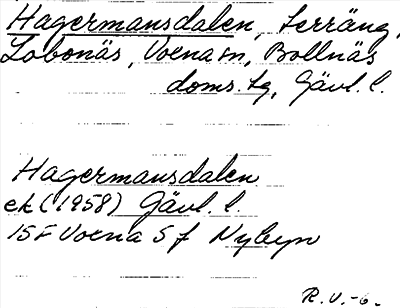 Hagermansdalen, terräng,
Lobonäs, Voxna sn, Bollnäs
doms.tg, Gävl. l.
Hagermansdalen
ek (1958) Gävl. l.
15F Voxna 5 f Nybyn
R.V.-6.